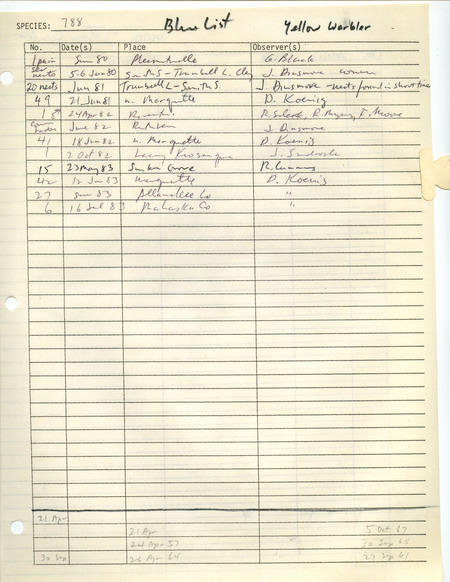 SPECIES: 788 Blue List Yellow Warbler
No. Date(s) Place Observer(s)
1 pain Sum 80 Pleasantville G. Black
nests 5-6 Jun 80 Smith S - Trumbull L. Clay J. Dinsmore
20 nests Jun 81 Trumbull L - Smith S. J. Dinsmore - nests found in short time
49 21 Jun 81 n. Marquette D. Koenig
1 24 Apr 82 R. Myers, F. Moore
June 82 Ruthven J. Dinsmore
41 18 Jun 82 n. Marquette D. Koenig
1 2 Oct 82 J. Sandrock
15 23 May 83 Grove R. Cummins
42 12 Jun 83 Marquette D. Koenig
27 sum 83 Allamakee Co "
6 16 Jul 83 Mahaska Co "
21 Apr
21 Apr 5 Oct 67
24 Apr 57 30 Sep 65
30 Sep 26 Apr 64 27 Sep 61